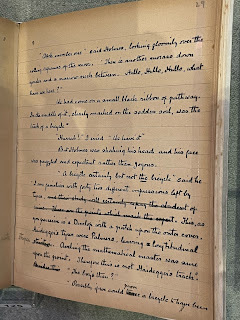 29
"Number one" said Holmes, looking gloomily over the
rolling expanse of the moor. "There is another morass down
yonder and a narrow neck between. Hullo, Hullo, Hullo, what
have we here?"
We had come on a small black ribbon of pathway.
In the middle of it, clearly marked on the sodden soil, was the
track of a bicycle."
"Hurrah!" I cried. "We have it."
But Holmes was shaking his head, and his face
was puzzled and expectant rather than joyous.
"A bicycle certainly but not the bicycle" said he
"I am familiar with forty two different impressions left by
tyres. This, as
you perceive is a Dunlop with a patch upon the outer cover.
Heidegger's tyres were Palmers, leaving longitudinal
stripes. Aveling the mathematical master was sure
upon the point. Therefore it is not Heidegger's track".
"The boy's then?"
"Possibly if we could prove a bicycle to have been